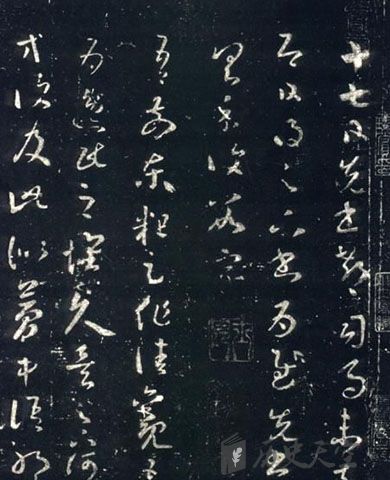 十七日先書郗司馬未去
即日得足下書為慰先書
具示復數字
吾前東粗足作佳觀吾
為逸民之懷久矣足下何
方復及此似夢中語耶
历史天空